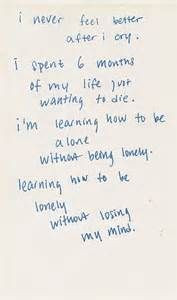 i never feel better
after i cry.
i spent 6 months
of my life just
wanting to die.
i'm learning how to be
alone
without being lonely.
learning how to be
lonely
without losing
my mind.